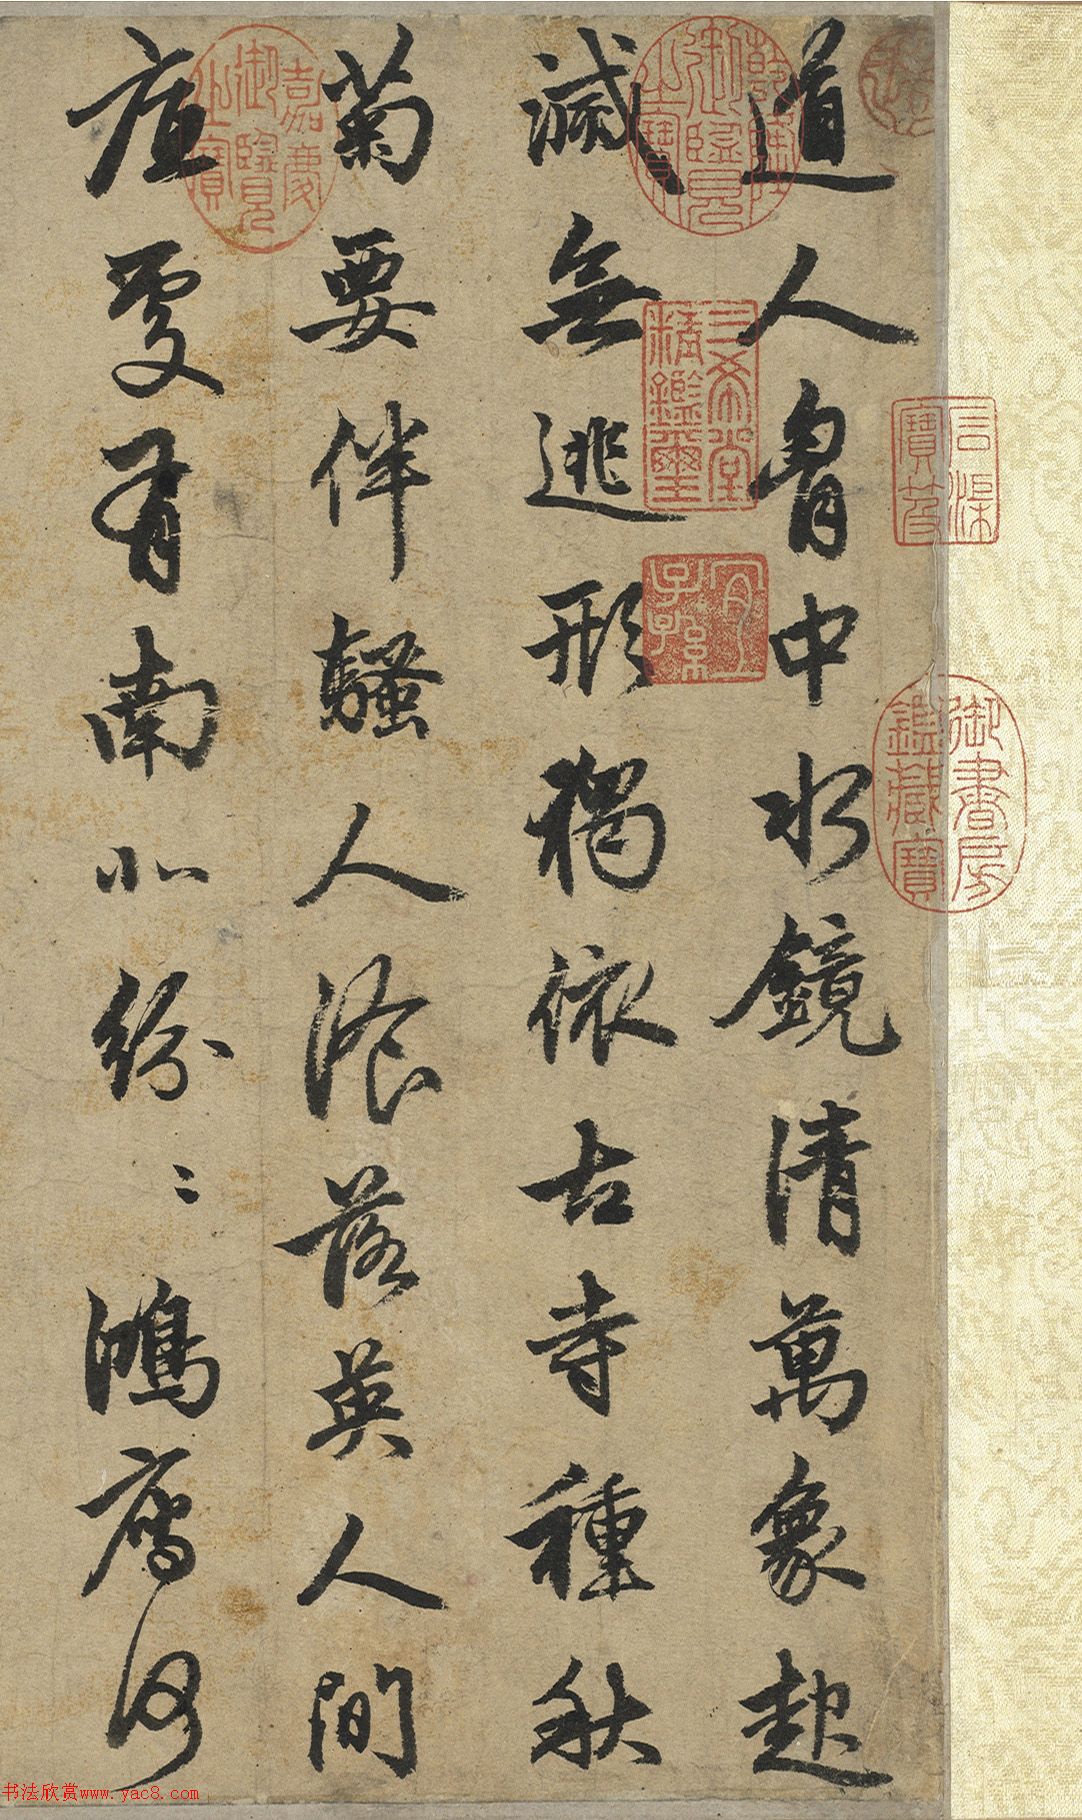 道人胷中水鏡清萬象起
滅無逃形獨依古寺種秋
菊要伴騷人湌落英人間
底處有南北紛〻鴻鴈何
乾隆御覽之寶
嘉慶御覽之寶
三希堂精鑑璽
宜子孫
石渠寶笈
御書房鑑藏寶
书法欣赏www.yac8.com